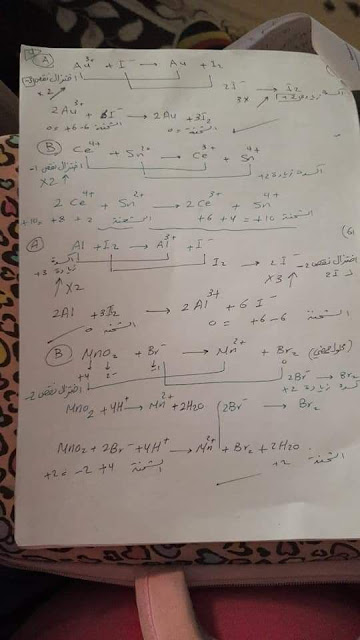 (A) Au³⁺ + I⁻ → Au + I₂
اختزال نقص -3
2I⁻ → I₂
x2
3x
2Au³⁺ + 6I⁻ → 2Au + 3I₂
0 = +6 -6 الشحنة
الشحنة = 0
(B) Ce⁴⁺ + Sn²⁺ → Ce³⁺ + Sn⁴⁺
اختزال نقص -1
X2
اكسدة زيادة +2
2Ce⁴⁺ + Sn²⁺ → 2Ce³⁺ + Sn⁴⁺
+10 = +8 +2 الشحنة
+6 +4 = +10 الشحنة
(6)
(A) Al + I₂ → Al³⁺ + I⁻
اكسدة زيادة +3
X2
I₂ → 2I⁻
اختزال نقص -2
X3
2Al + 3I₂ → 2Al³⁺ + 6I⁻
0 الشحنة
0 = +6 -6 الشحنة
(B) MnO₂ + Br⁻ → Mn²⁺ + Br₂
+4 -2 -1 0
اختزال نقص -2
2Br⁻ → Br₂
اكسدة زيادة +2
MnO₂ + 4H⁺ → Mn²⁺ + 2H₂O
2Br⁻ → Br₂
MnO₂ + 2Br⁻ + 4H⁺ → Mn²⁺ + Br₂ + 2H₂O
+2 = -2 +4 الشحنة
+2 الشحنة